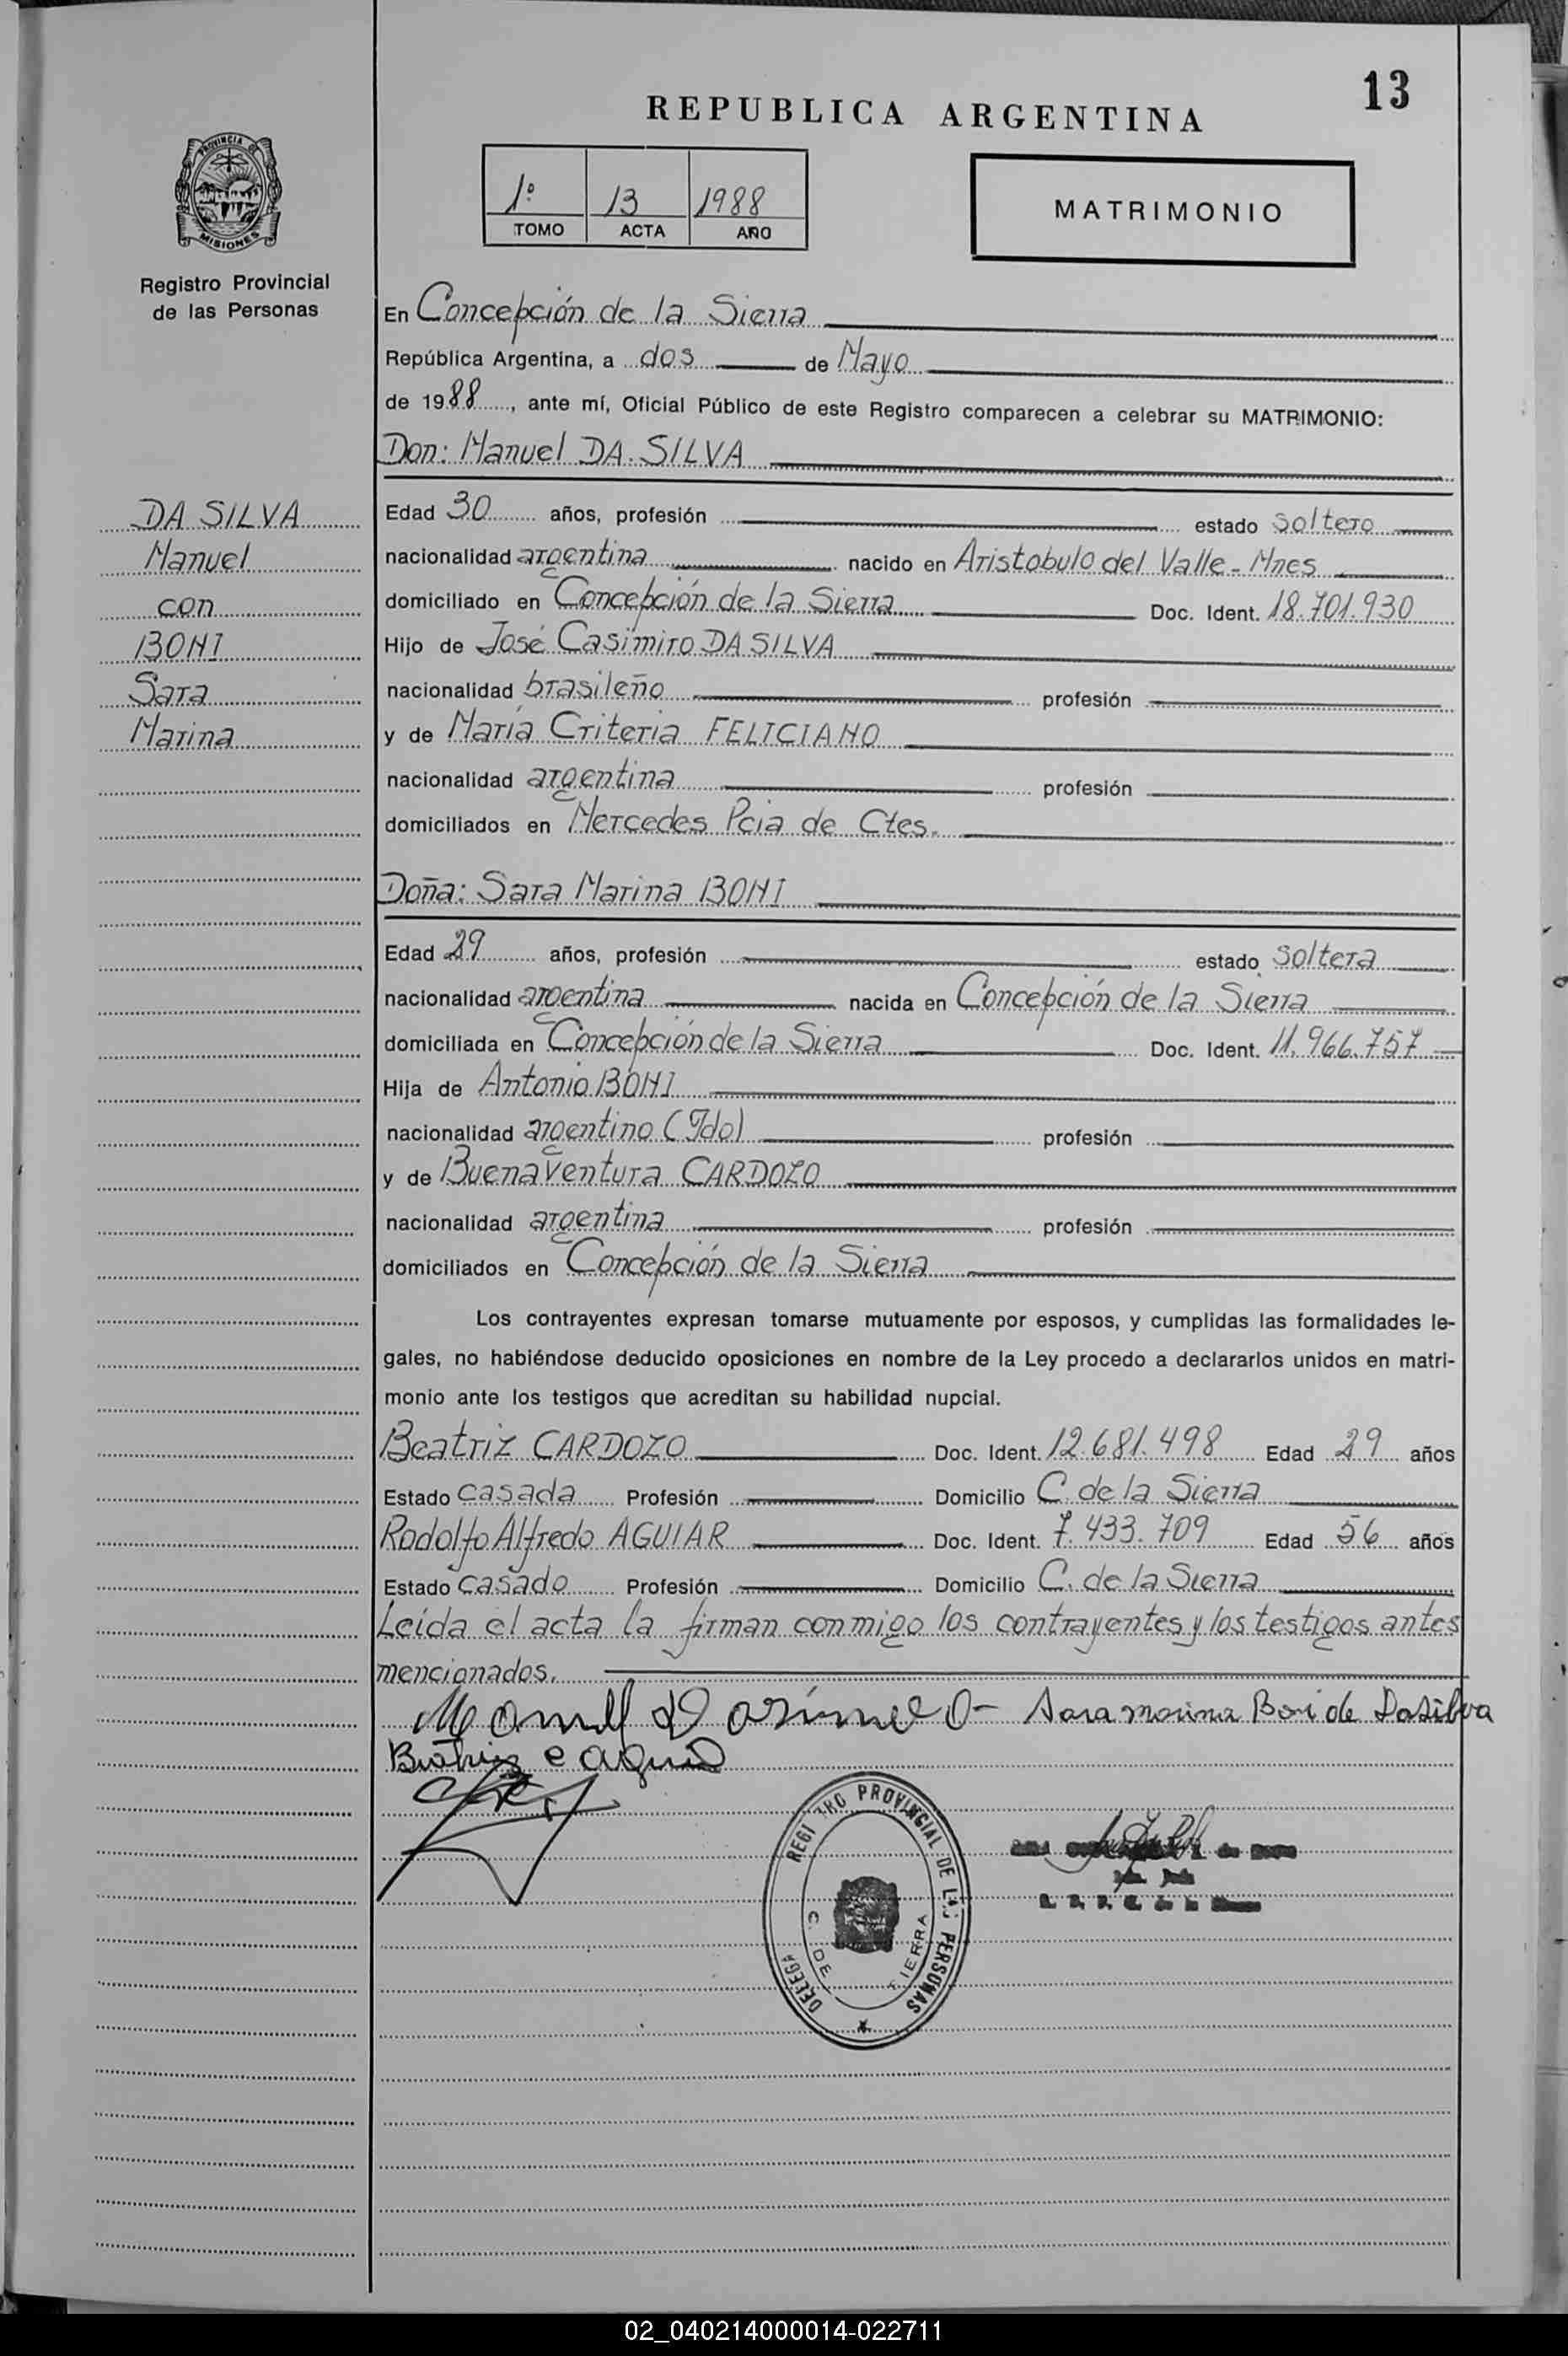 13
REPUBLICA ARGENTINA
PROVINCIA DE
MISIONES
Registro Provincial
de las Personas
1º 13 1988
TOMO ACTA AÑO
MATRIMONIO
En Concepción de la Sierra
República Argentina, a dos de Mayo
de 1988, ante mí, Oficial Público de este Registro comparecen a celebrar su MATRIMONIO:
Don: Manuel DA SILVA
DA SILVA
Manuel
con
BONI
Sara
Marina
Edad 30 años, profesión estado soltero
nacionalidad argentina nacido en Aristobulo del Valle - Mnes
domiciliado en Concepción de la Sierra Doc. Ident. 18.701.930
Hijo de José Casimiro DA SILVA
nacionalidad brasileño profesión
y de María Criteria FELICIANO
nacionalidad argentina profesión
domiciliados en Mercedes Pcia de Ctes.
Doña: Sara Marina BONI
Edad 29 años, profesión estado soltera
nacionalidad argentina nacida en Concepción de la Sierra
domiciliada en Concepción de la Sierra Doc. Ident. 11.966.757
Hija de Antonio BONI
nacionalidad argentino (Fdo) profesión
y de Buenaventura CARDOZO
nacionalidad argentina profesión
domiciliados en Concepción de la Sierra
Los contrayentes expresan tomarse mutuamente por esposos, y cumplidas las formalidades le-
gales, no habiéndose deducido oposiciones en nombre de la Ley procedo a declararlos unidos en matri-
monio ante los testigos que acreditan su habilidad nupcial.
Beatriz CARDOZO Doc. Ident. 12.681.498 Edad 29 años
Estado casada Profesión Domicilio C. de la Sierra
Rodolfo Alfredo AGUIAR Doc. Ident. 7.433.709 Edad 56 años
Estado casado Profesión Domicilio C. de la Sierra
Leída el acta la firman conmigo los contrayentes y los testigos antes
mencionados.
Sara marina Boni de Dasilva
REGISTRO PROVINCIAL DE LAS PERSONAS
DELEGA
C. DE SIERRA
02_040214000014-022711